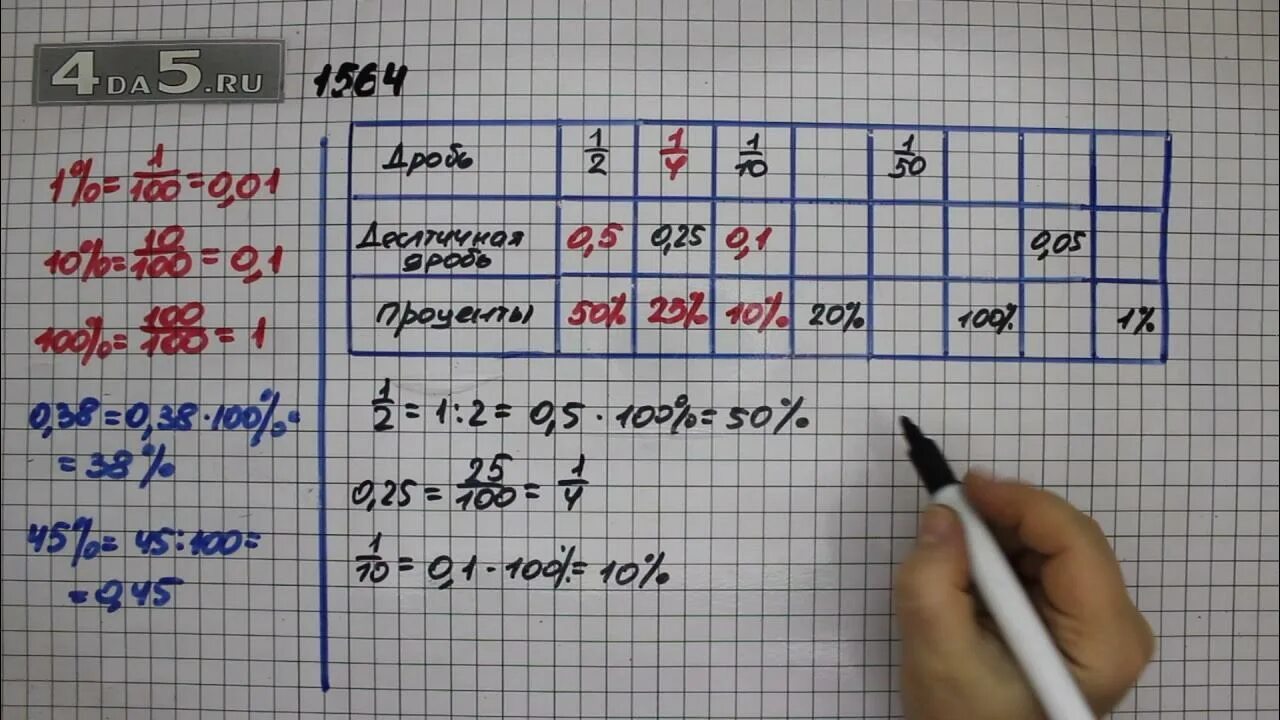 4DA5.RU
1564
1% = 1/100 = 0,01
10% = 10/100 = 0,1
100% = 100/100 = 1
0,38 = 0,38 · 100% =
= 38%
45% = 45 : 100 =
= 0,45
Дробь 1/2 1/4 1/10 1/50
Десятичная дробь 0,5 0,25 0,1 0,05
Проценты 50% 25% 10% 20% 100% 1%
1/2 = 1 : 2 = 0,5 · 100% = 50%
0,25 = 25/100 = 1/4
1/10 = 0,1 · 100% = 10%